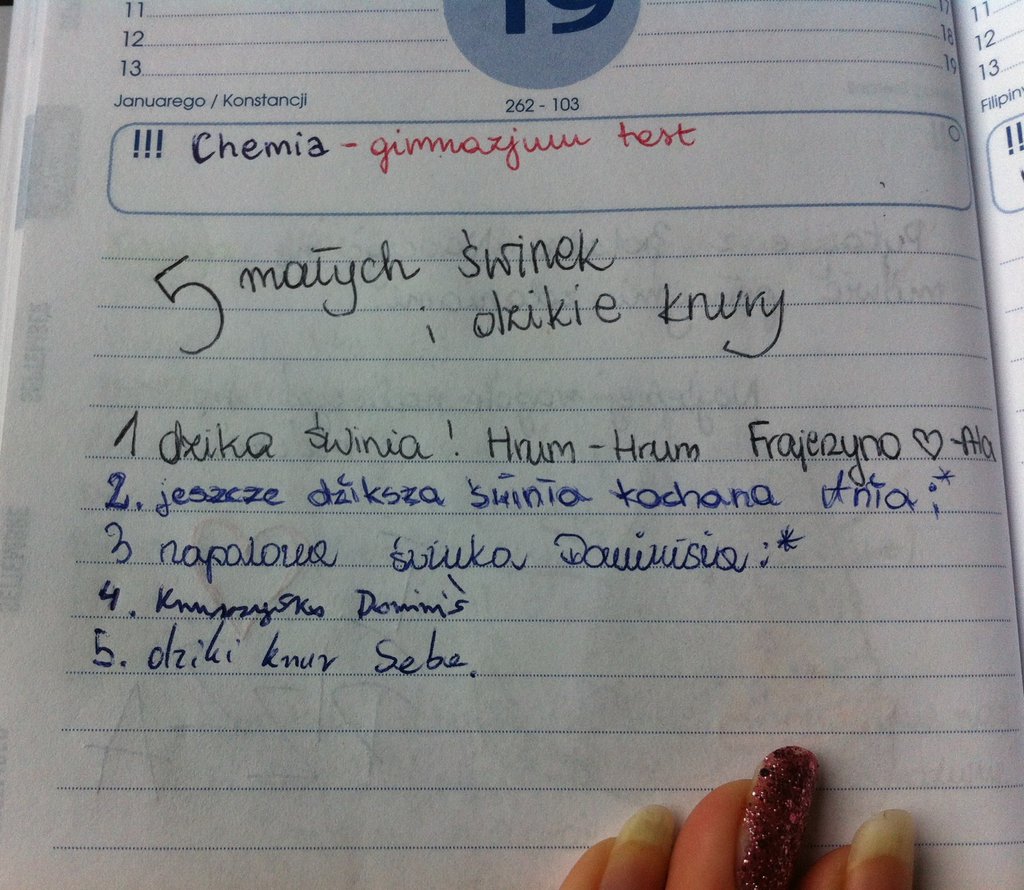 11
12
13
19
17
18
19
11
12
13
Januarego / Konstancji
262 - 103
Filipiny
!!! Chemia - gimnazjum test
!!
5 małych świnek
i dzikie knury
1 dzika świnia! Hrum - Hrum Frajerzyno ♡ -Ala
2. jeszcze dziksza świnia kochana Ania ;*
3 napalona świnka Dominisia :*
4. Knurzysko Dominiś
5. dziki knur Sebe.